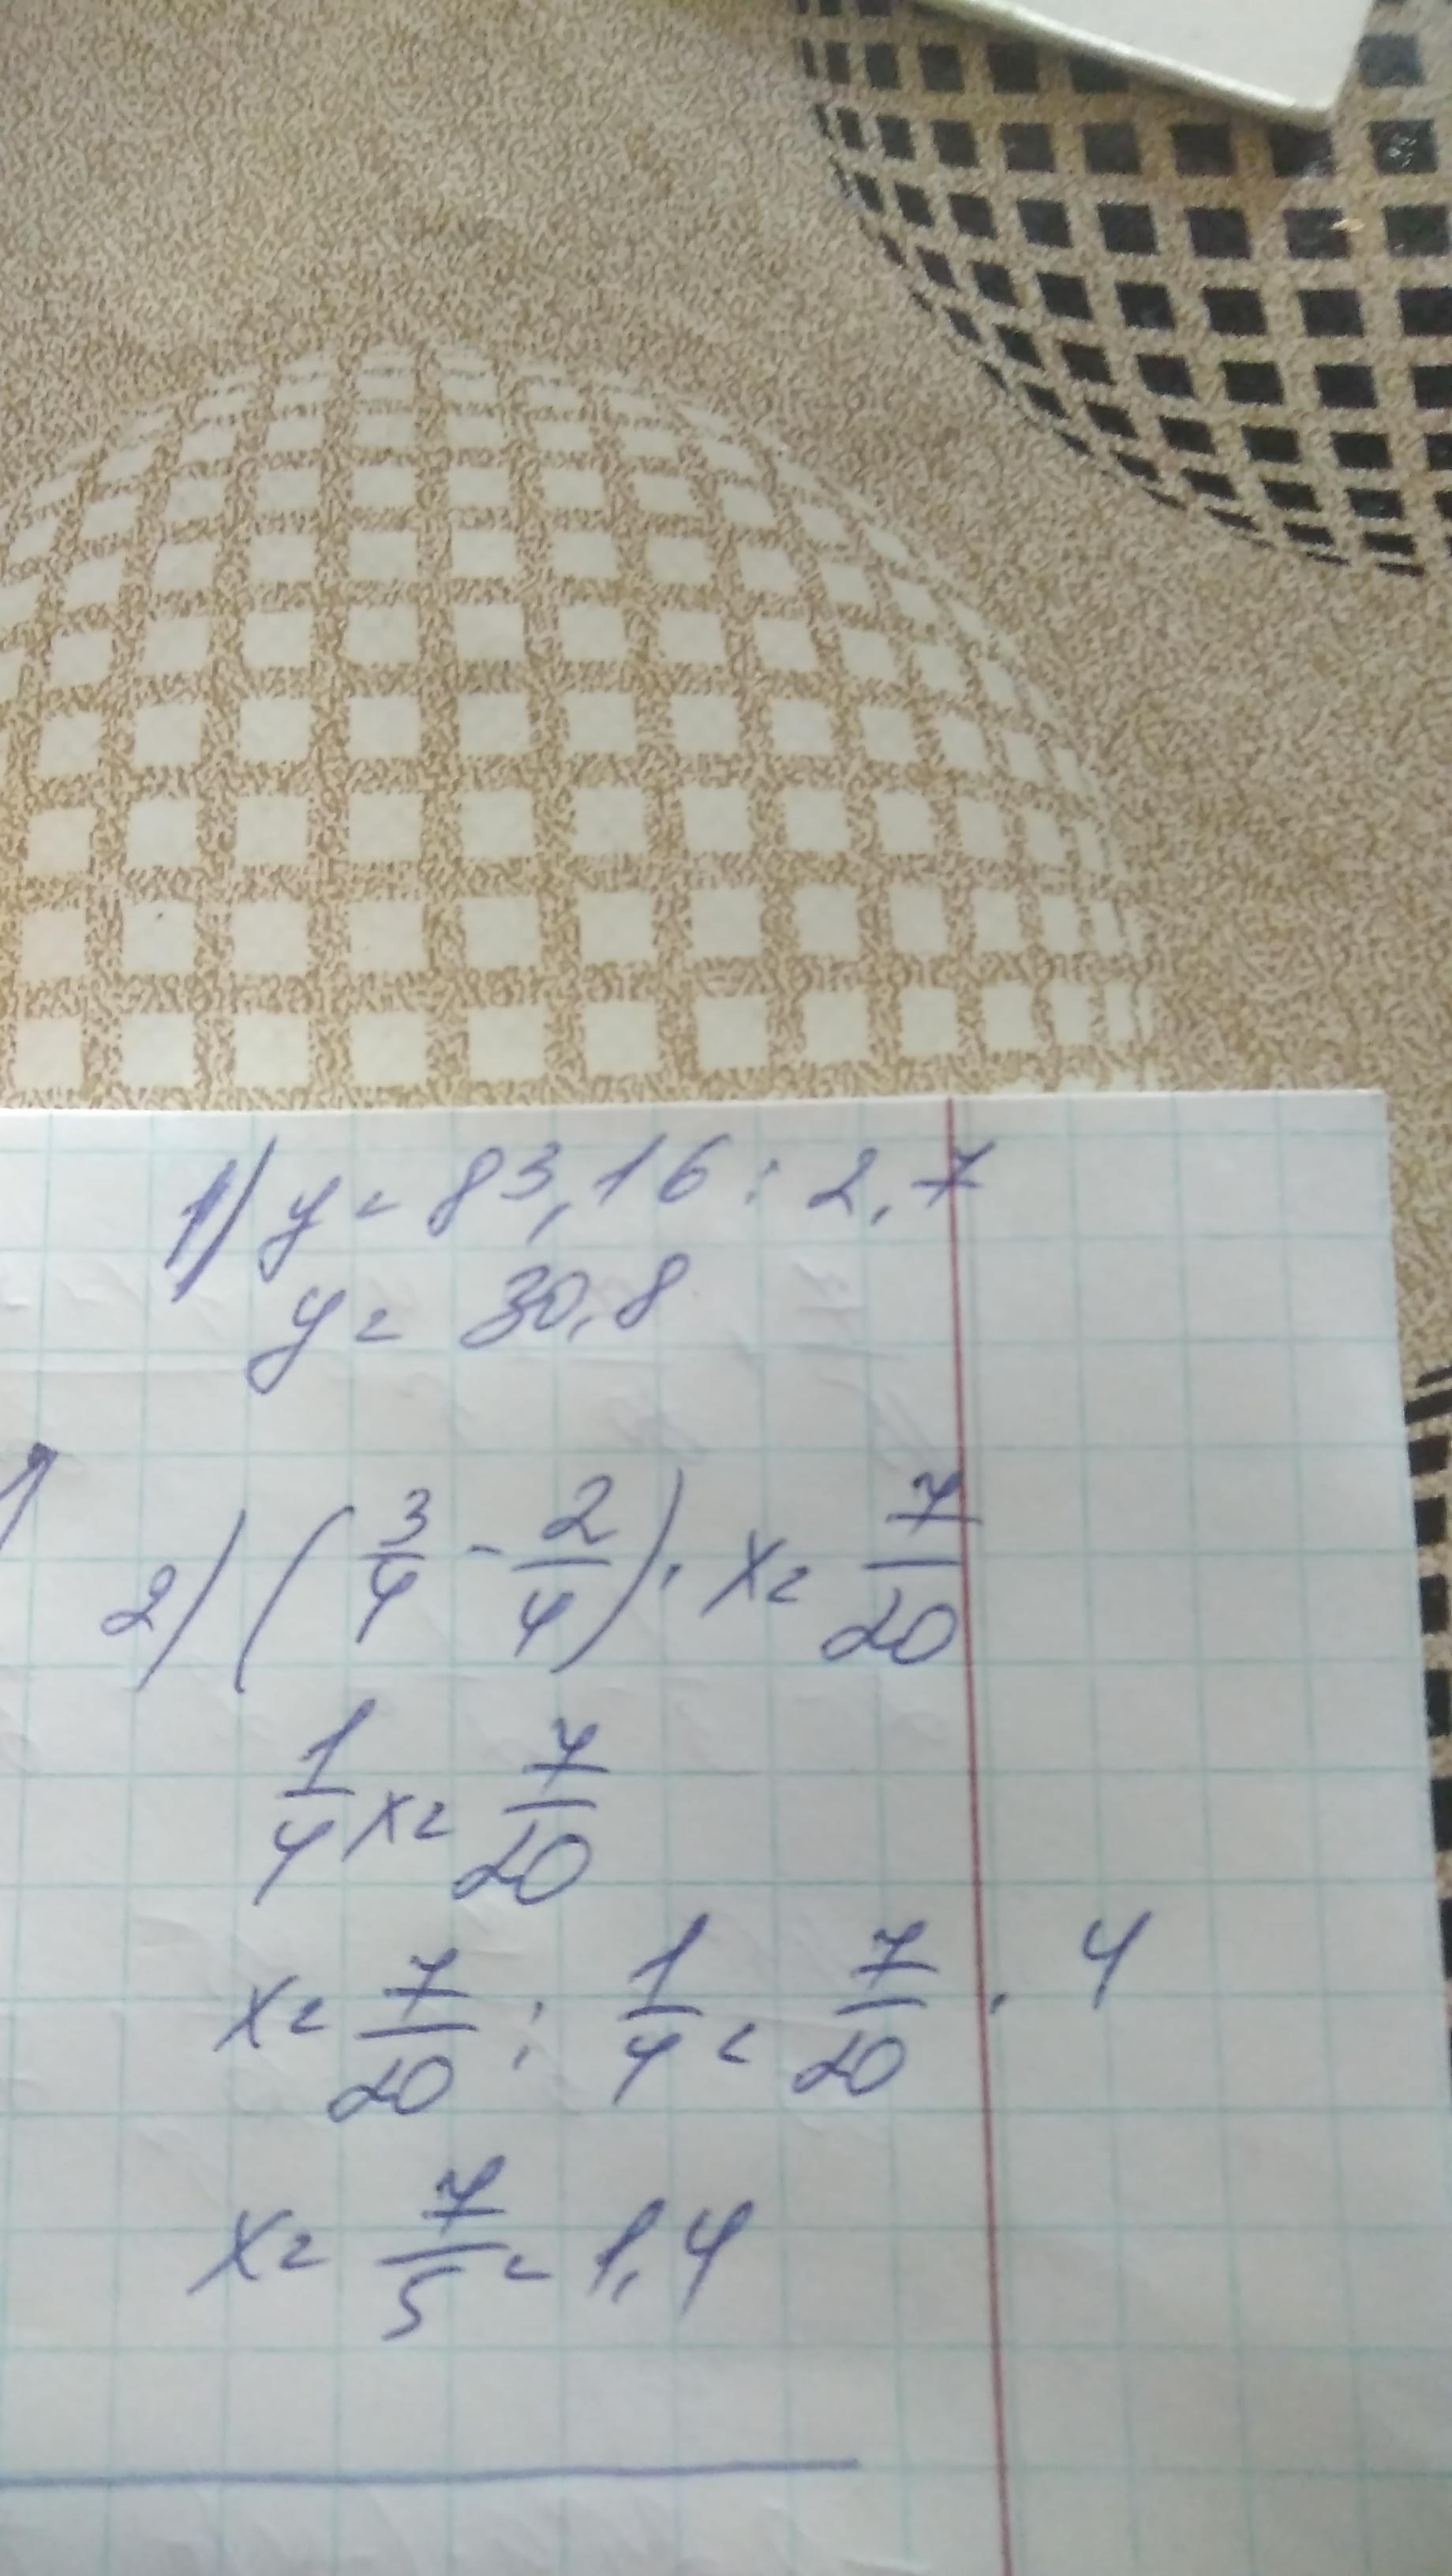 1) y = 83,16 : 2,7
y = 30,8
2) (3/4 - 2/4) · x = 7/20
1/4 x = 7/20
x = 7/20 : 1/4 = 7/20 · 4
x = 7/5 = 1,4